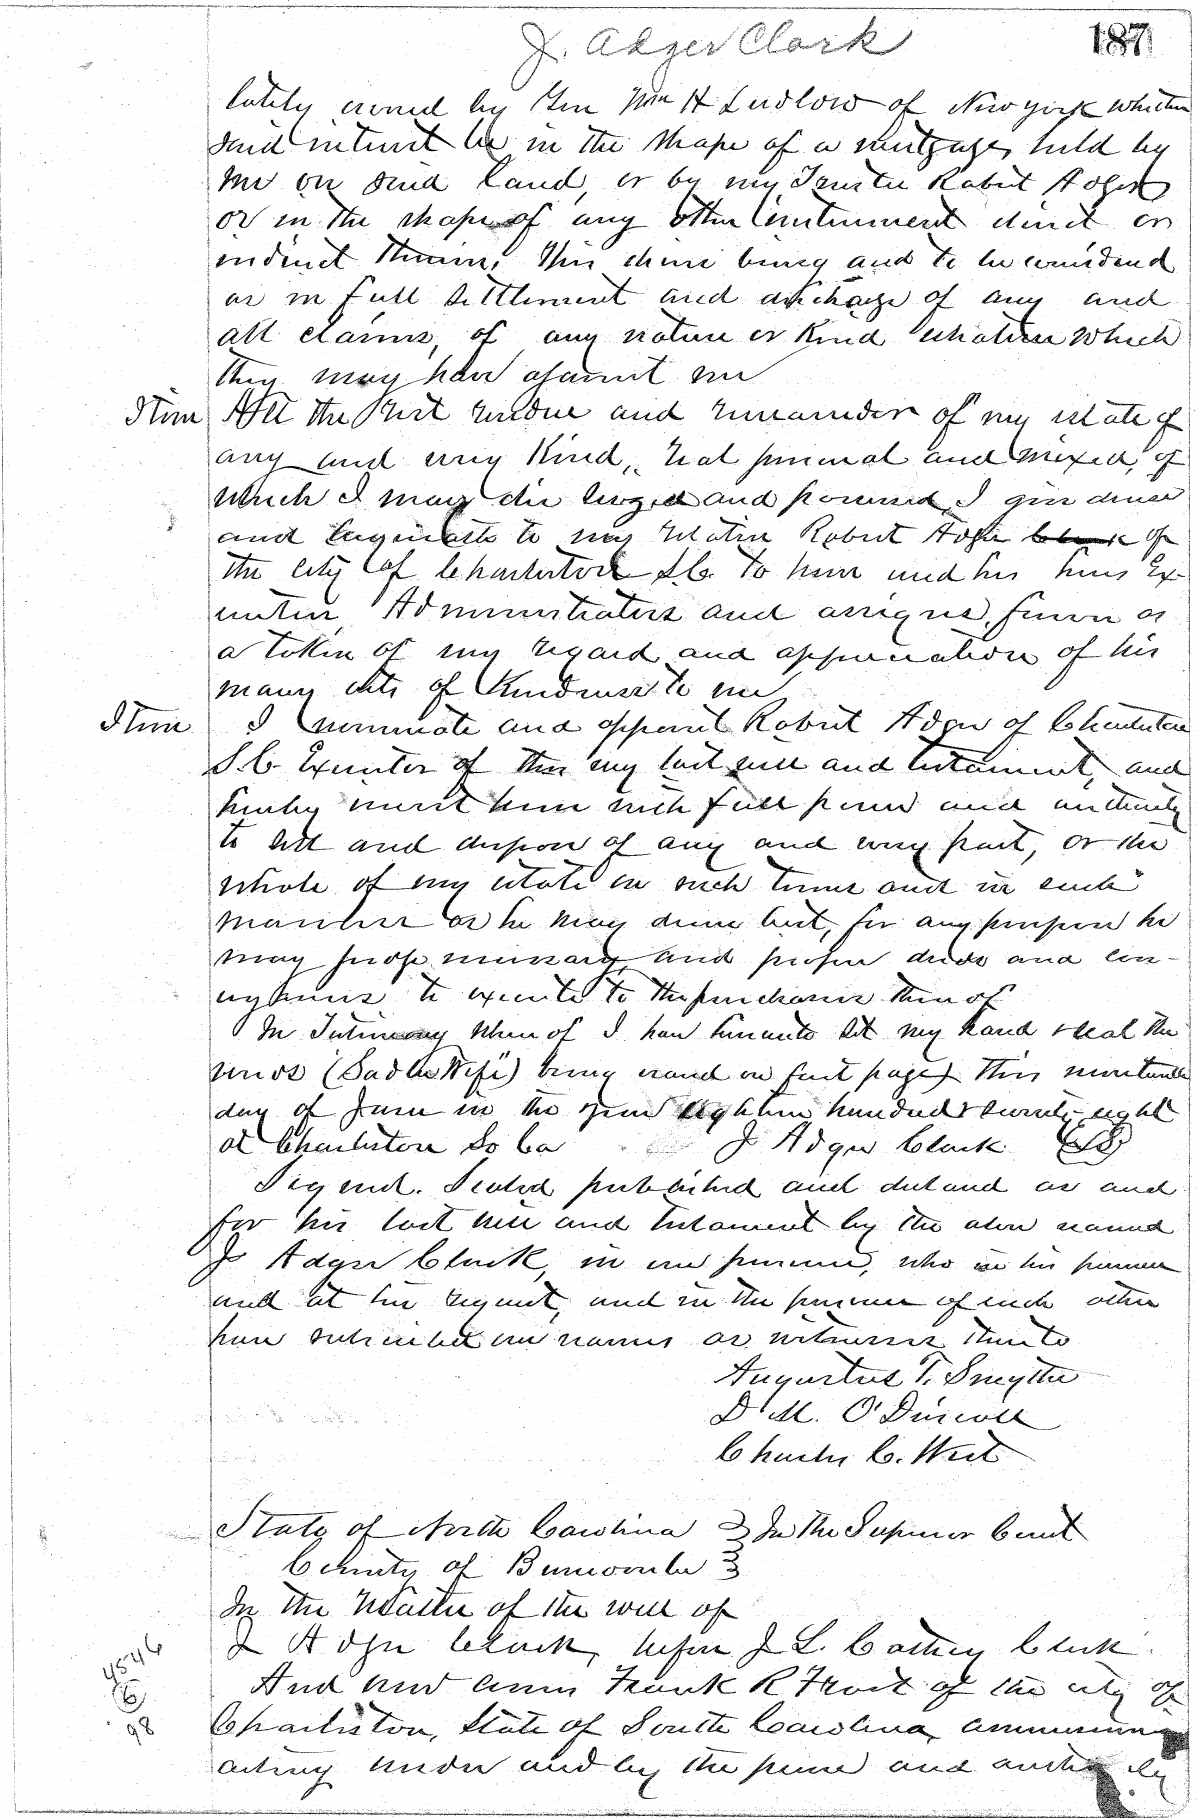 J. Adger Clark
187
lately owned by Gen Wm H Ludlow of New York whether
said interest be in the shape of a mortgage, held by
me on said land, or by my Trustee Robert Adger
or in the shape of any other instrument direct or
indirect therein, this devise being and to be considered
as in full settlement and discharge of any and
all claims, of any nature or Kind whatever which
they may have against me
Item All the Rest residue and remainder of my estate of
any and every Kind, real personal and mixed, of
which I may die seized and possessed, I give devise
and bequeath to my relative Robert Adger Clark of
the City of Charleston S.C. To him and his heirs Ex-
ecutors Administrators and assigns forever as
a token of my regard and appreciation of his
many acts of Kindness to me
Item I nominate and appoint Robert Adger of Charleston
S.C. Executor of this my last will and testament, and
hereby invest him with full power and authority
to sell and dispose of any and every part, or the
whole of my estate on such terms and in such
manner as he may deem best, for any purpose he
may judge necessary and proper deeds and con-
veyances to execute to the purchasers thereof
In Testimony Whereof I have hereunto set my hand & seal the
words (Sadler Wife) being erased on first page) this seventeenth
day of June in the year eighteen hundred & seventy-eight
at Charleston So Ca J Adger Clark (LS)
Signed. Sealed published and declared as and
for his last will and testament by the above named
J Adger Clark, in our presence, who in his presence
and at his request, and in the presence of each other
have subscribed our names as witnesses thereto
Augustus T. Smythe
D. M. O'Driscoll
Charles C. West
State of North Carolina } In the Superior Court
County of Buncombe }
In the Matter of the will of
J Adger Clark, before J L. Cathey Clerk.
And now comes Frank R Frost of the city of
4546
C
98
Charleston, State of South Carolina, commissioner
acting under and by the power and authority